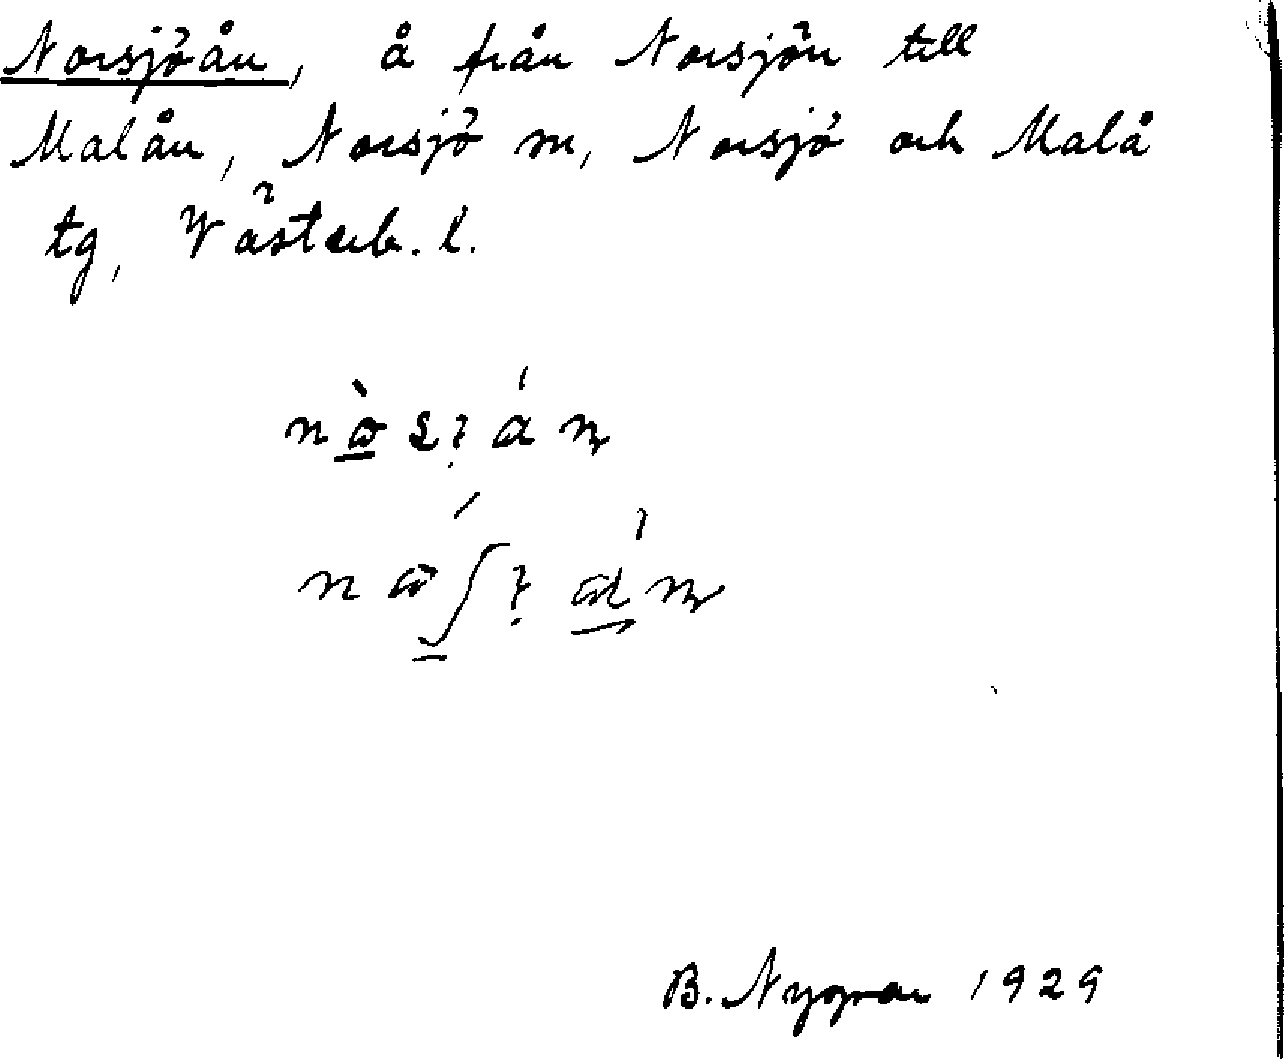 Norsjöån, å från Norsjön till
Malån, Norsjö m, Norsjö och Malå
tg, Västerb. l.
B. Nygren 1929